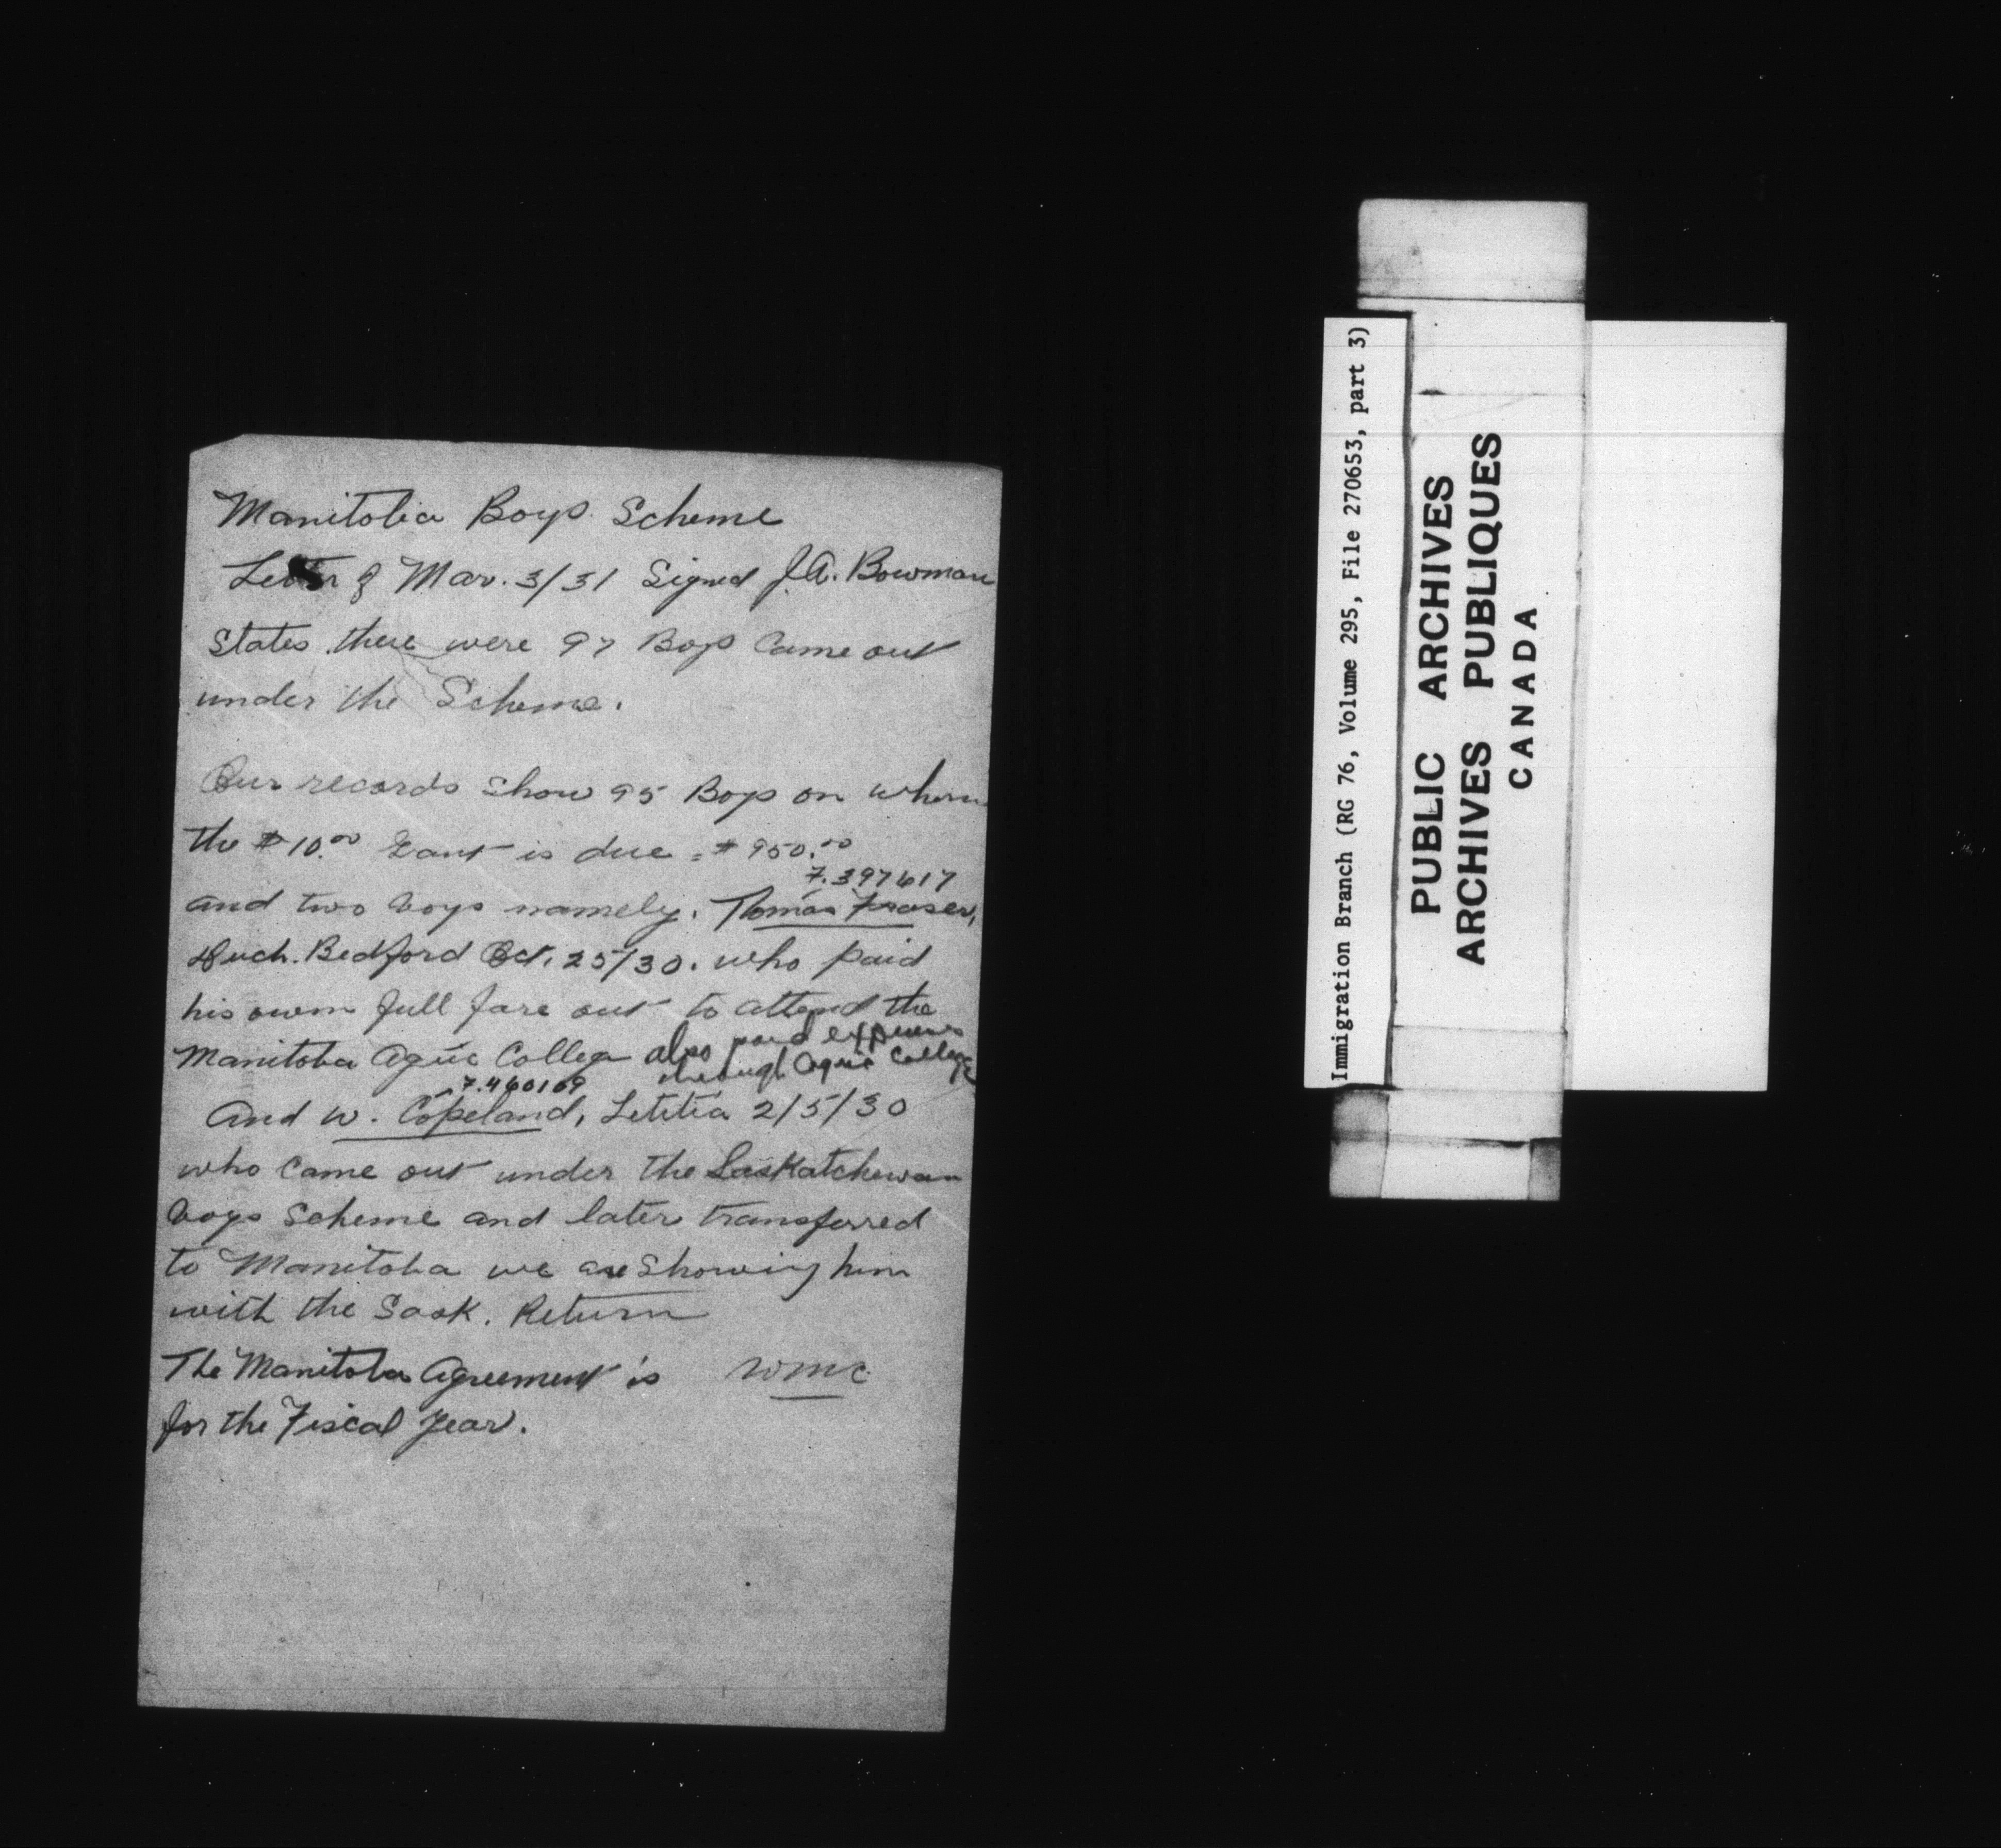 Manitoba Boys Scheme
Letter of Mar. 3/31 Signed J.A. Bowman
States there were 97 Boys Came out
under the Scheme.
Our records show 95 Boys on whom
the $10.00 Grant is due = $950.00
7.397617
and two boys namely. Thomas Fraser,
Duch. Bedford Oct. 25/30. who paid
his own full fare out to attend the
Manitoba Agric College also paid expenses
through Agric College
7.460109
And W. Copeland, Letitia 2/5/30
who came out under the Saskatchewan
boys Scheme and later transferred
to Manitoba we are showing him
with the Sask. Return
The Manitoba Agreement is WMC
for the Fiscal Year.
Immigration Branch (RG 76, Volume 295, File 270653, part 3)
PUBLIC ARCHIVES
ARCHIVES PUBLIQUES
CANADA